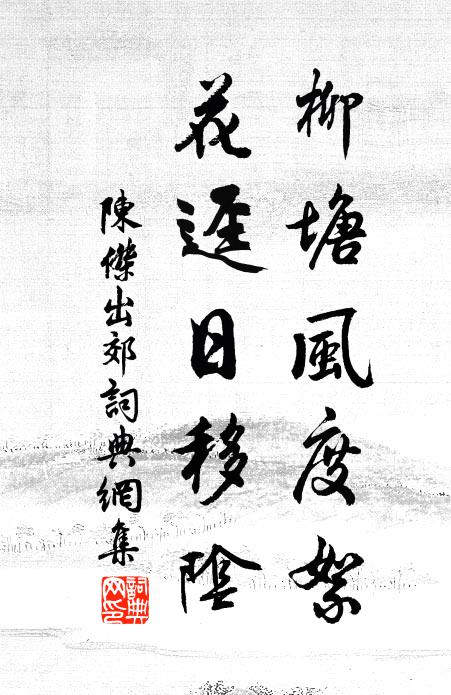 柳塘風度絮
花逕日移陰
陳傑出郊詞典網集
詞典网印